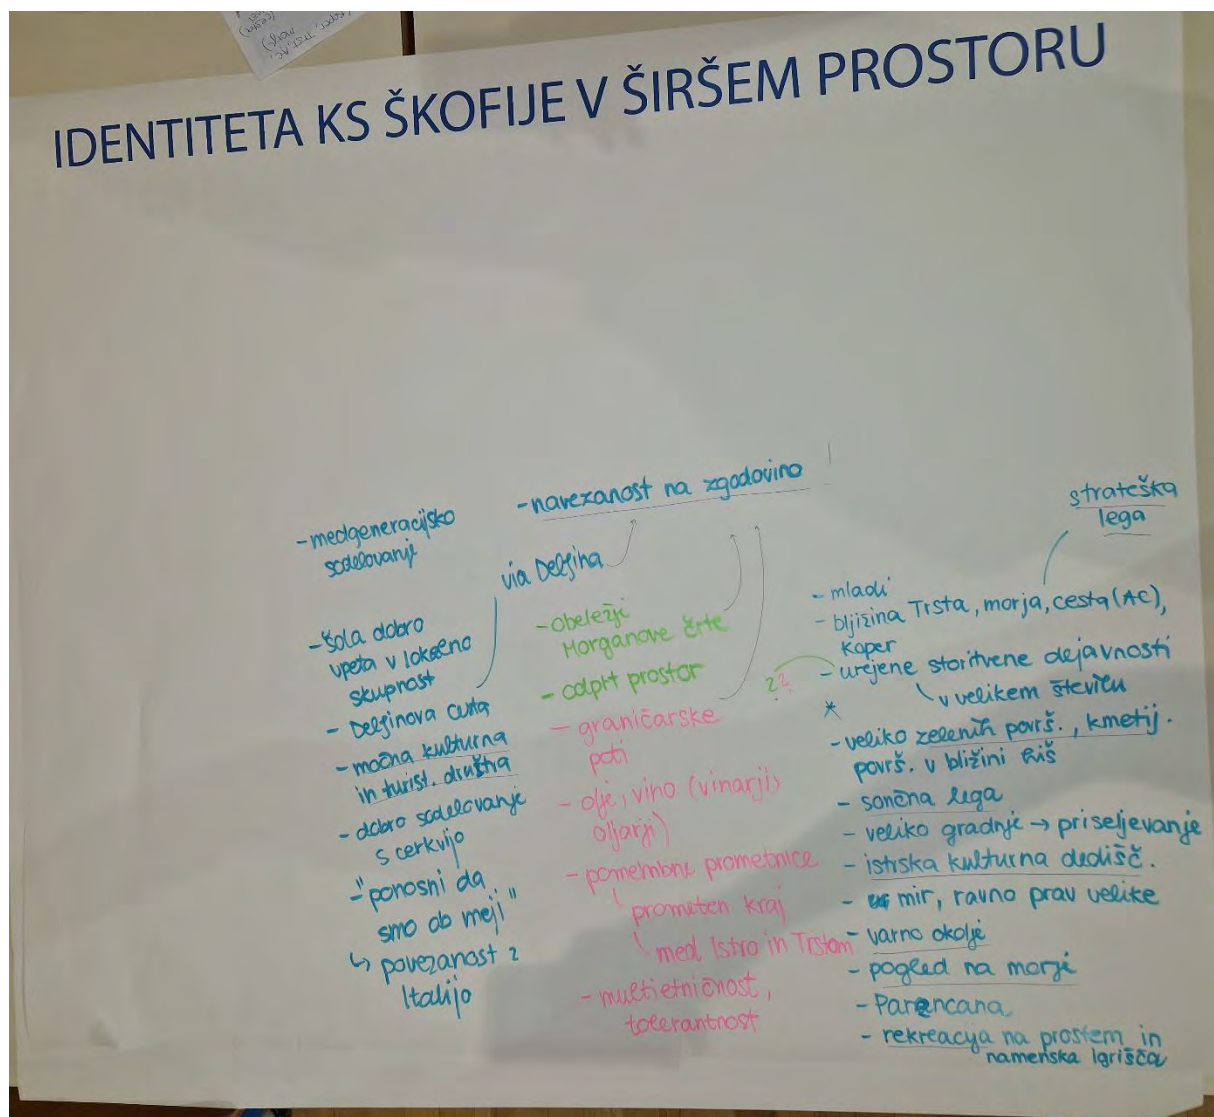 IDENTITETA KS ŠKOFIJE V ŠIRŠEM PROSTORU
- medgeneracijsko
sodelovanje
- šola dobro
vpeta v lokalno
skupnost
- Delfinova
- močna kulturna
in turist. društva
- dobro sodelovanje
s cerkvijo
- "ponosni da
smo ob meji"
↳ povezanost z
Italijo
- navezanost na zgodovino
via Delfina
- obeležje
Morganove črte
- odprt prostor
- graničarske
poti
- olje, vino (vinarji,
oljarji)
- pomembne prometnice
prometen kraj
med Istro in Trstom
- multietničnost,
tolerantnost
strateška
lega
- mladi
- bližina Trsta, morja, cesta (AC),
Koper
- urejene storitvene dejavnosti
v velikem številu
??
*
- veliko zelenih površ., kmetij.
površ. v bližini hiš
- sončna lega
- veliko gradnje → priseljevanje
- istrska kulturna dedišč.
- mir, ravno prav velike
- varno okolje
- pogled na morje
- Parencana
- rekreacija na prostem in
namenska igrišča